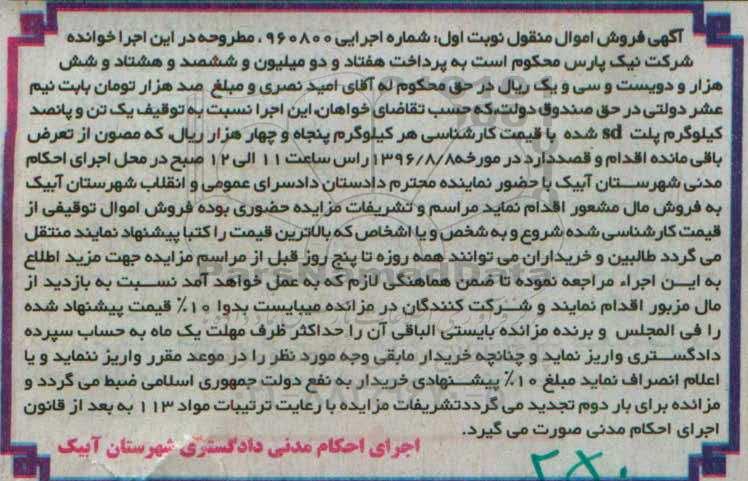 آگهی فروش اموال منقول نوبت اول: شماره اجرایی ۹۶۰۸۰۰، مطروحه در این اجرا خوانده
شرکت نیک پارس محکوم است به پرداخت هفتاد و دو میلیون و ششصد و هشتاد و شش
هزار و دویست و سی و یک ریال در حق محکوم له آقای امید نصری و مبلغ صد هزار تومان بابت نیم
عشر دولتی در حق صندوق دولت،که حسب تقاضای خواهان،این اجرا نسبت به توقیف یک تن و پانصد
کیلوگرم پلت sd شده با قیمت کارشناسی هر کیلوگرم پنجاه و چهار هزار ریال، که مصون از تعرض
باقی مانده اقدام و قصددارد در مورخه ۱۳۹۶/۸/۸راس ساعت ۱۱ الی ۱۲ صبح در محل اجرای احکام
مدنی شهرستان آبیک با حضور نماینده محترم دادستان دادسرای عمومی و انقلاب شهرستان آبیک
به فروش مال مشعور اقدام نماید مراسم و تشریفات مزایده حضوری بوده فروش اموال توقیفی از
قیمت کارشناسی شده شروع و به شخص و یا اشخاص که بالاترین قیمت را کتبا پیشنهاد نمایند منتقل
می گردد طالبین و خریداران می توانند همه روزه تا پنج روز قبل از مراسم مزایده جهت مزید اطلاع
به این اجراء مراجعه نموده تا ضمن هماهنگی لازم که به عمل خواهد آمد نسبت به بازدید از
مال مزبور اقدام نمایند و شرکت کنندگان در مزائده میبایست بدوا ۱۰٪ قیمت پیشنهاد شده
را فی المجلس و برنده مزائده بایستی الباقی آن را حداکثر ظرف مهلت یک ماه به حساب سپرده
دادگستری واریز نماید و چنانچه خریدار مابقی وجه مورد نظر را در موعد مقرر واریز ننماید و یا
اعلام انصراف نماید مبلغ ۱۰٪ پیشنهادی خریدار به نفع دولت جمهوری اسلامی ضبط می گردد و
مزائده برای بار دوم تجدید می گرددتشریفات مزایده با رعایت ترتیبات مواد ۱۱۳ به بعد از قانون
اجرای احکام مدنی صورت می گیرد.
اجرای احکام مدنی دادگستری شهرستان آبیک
ParsNamadData